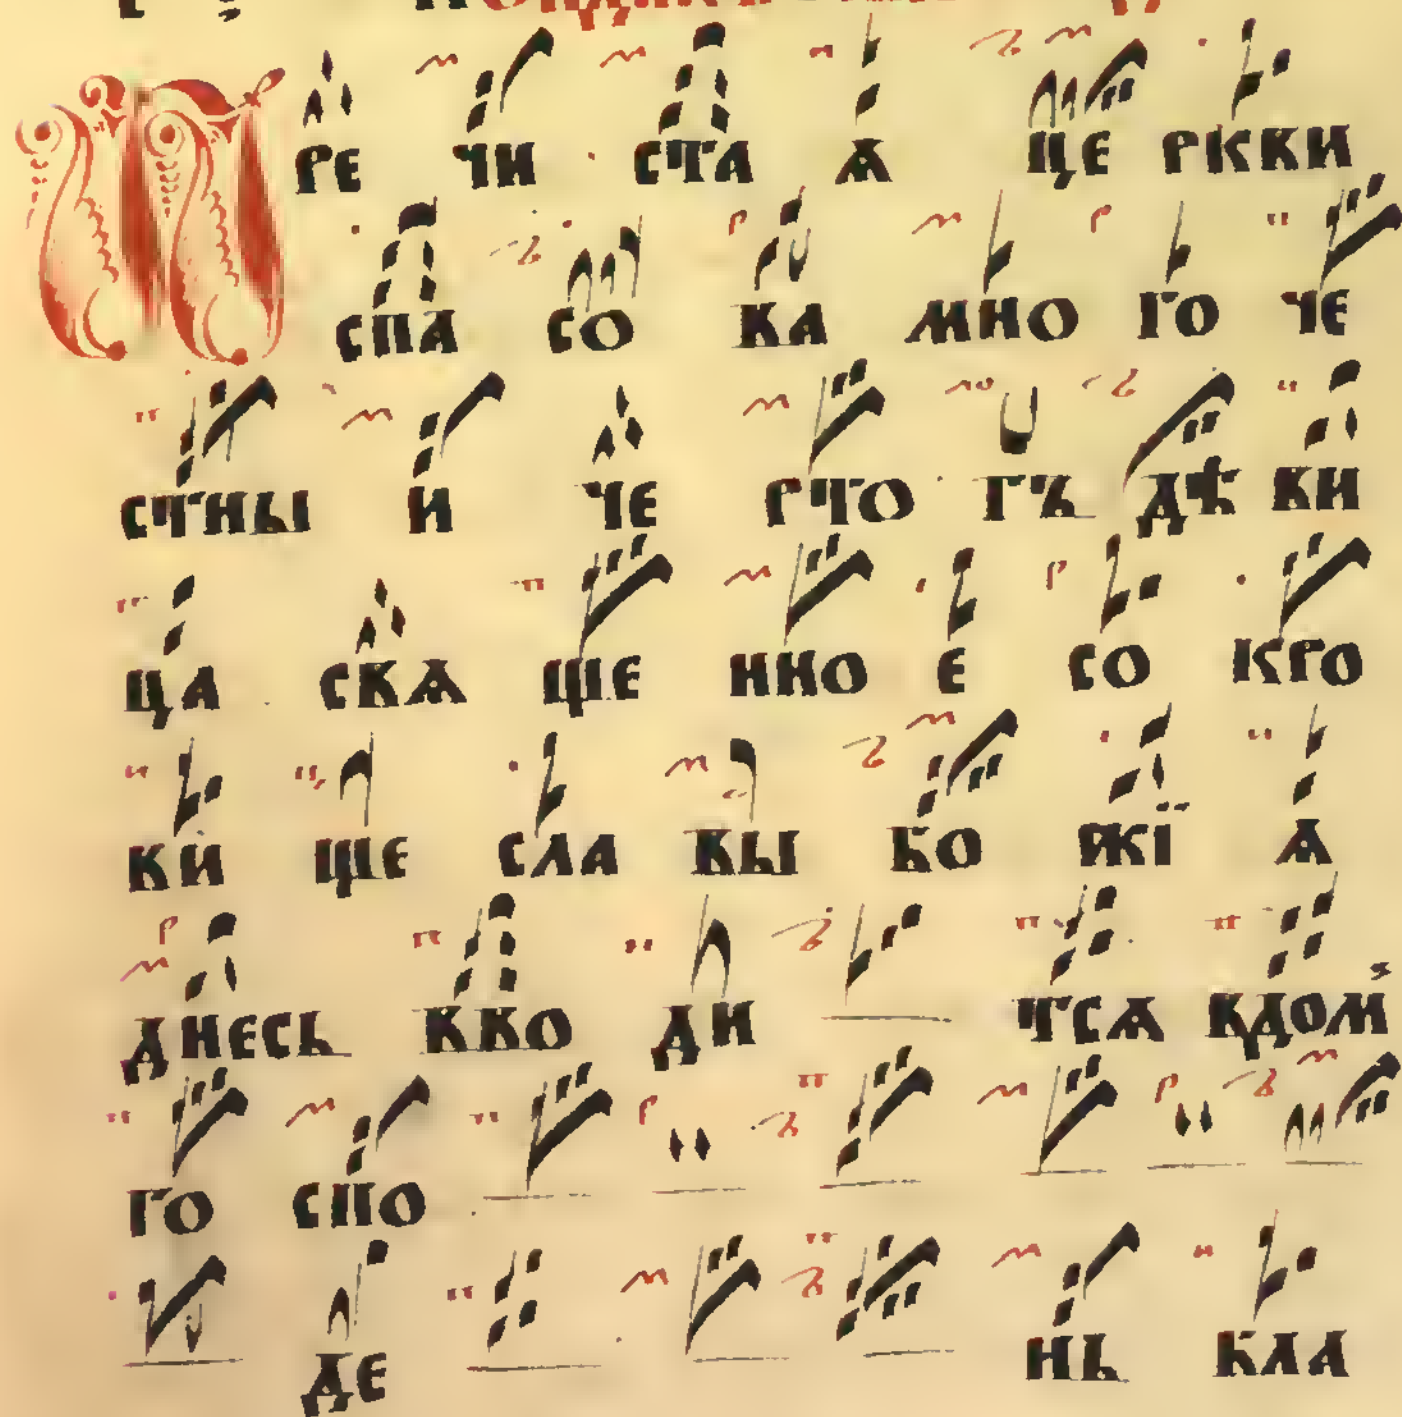 ПРЕ ЧИ СТА Ѧ ЦЕ РКВИ
СПА СО ВА МНО ГО ЧЕ
СТНЫ И ЧЕ РТО ГЪ ДѢ ВИ
ЦА СВѦ ЩЕ ННО Е СО КРО
ВИ ЩЕ СЛА ВЫ БО ЖЇ Ѧ
ДНЕСЬ ВВО ДИ ТСѦ ВДОМ
ГО СПО
ДЕ НЬ БЛА